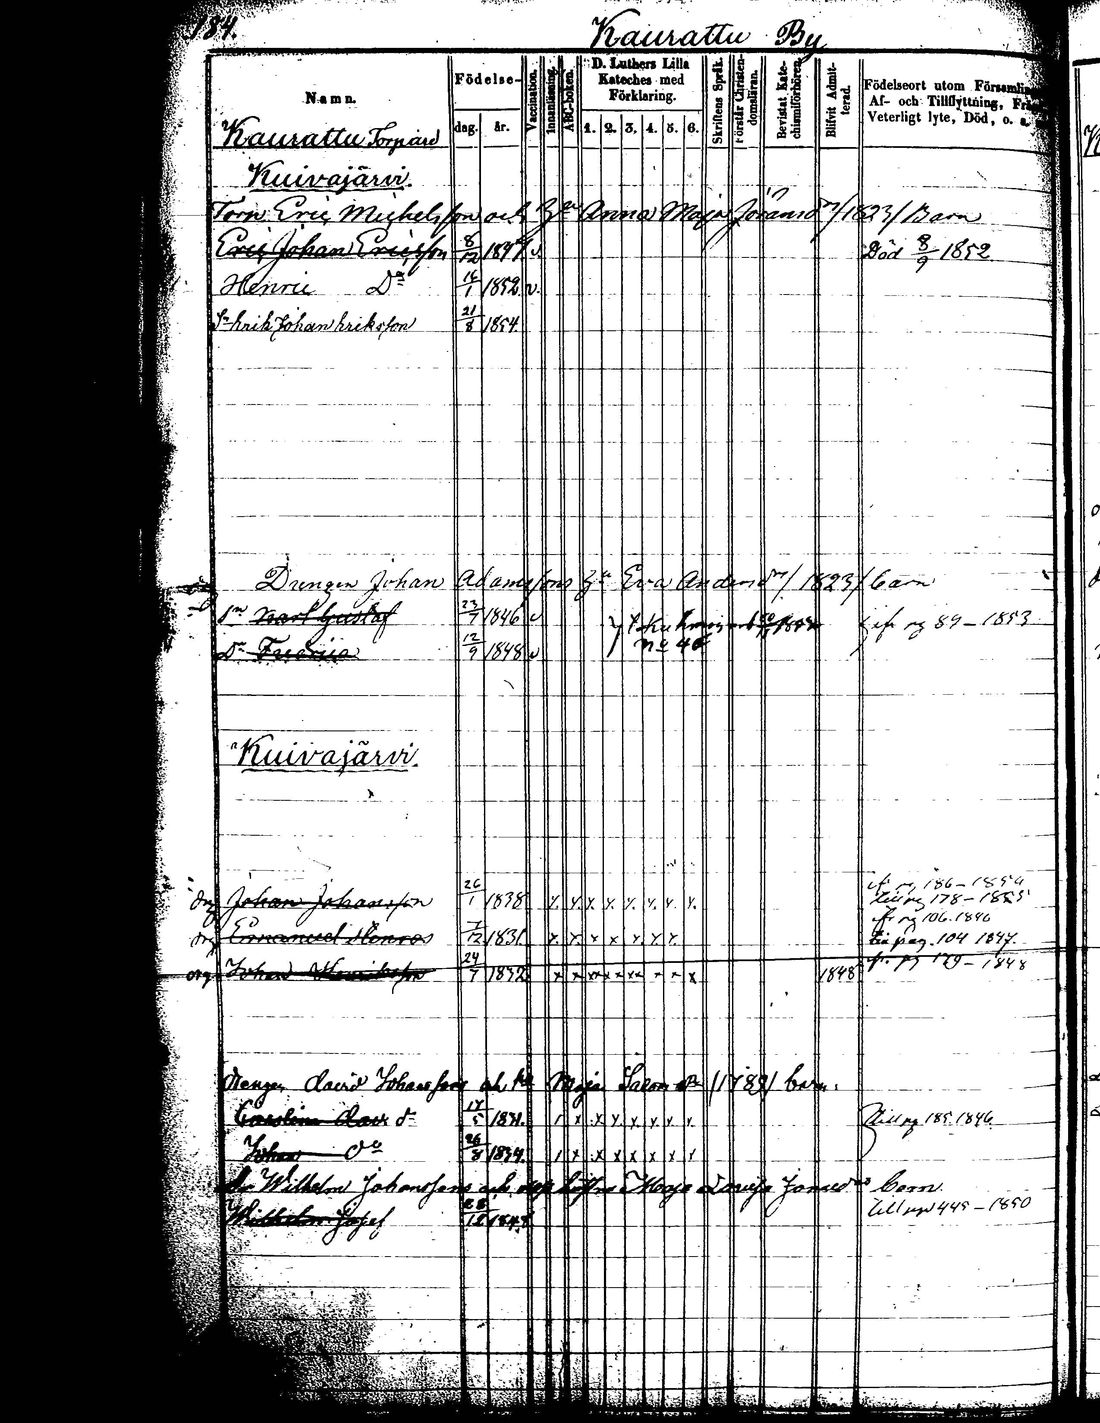 184.
Kaurattu By
Namn.
Födelse-
dag. år.
Vaccination.
Innanläsning.
ABC-boken.
D. Luthers Lilla
Kateches med
Förklaring.
1. 2. 3. 4. 5. 6.
Skriftens Språk.
Förstår Christen-
domsläran.
Bevistat Kate-
chismiförhören.
Blifvit Admit-
terad.
Födelseort utom Församlin
Af- och Tillflyttning, Frä
Veterligt lyte, Död, o. s.
Kaurattu Torpare
Kuivajärvi.
Torp. Eric Michelsson och Anna Maja Göransdr /1823/ Barn
Eric Johan Ericsson 8/12 1847 v Död 8/9 1852
Henric Do 16/1 1852 v.
Sn Erik Johan Eriksson 21/8 1854
Drengen Johan Adamssons Eva Andersdr / 1823 / barn
Sn Karl Gustaf 23/7 1846 v pg 89 - 1853
Dr Fredrica 12/9 1848 v no 40
Kuivajärvi.
drg Johan Johansson 26/1 1838 x. x. x x. x. x. x x. pg 186 - 1854
till pg 178 - 1855
fr pg 106. 1846
drg Emanuel Henros 7/12 1831 x. x. x x x. x. x. till pag. 104 1847.
drg Johan Henriksson 24/7 1832 x x x x x x x x 1848 fr. pg 179 - 1848
Drengen David Johanssons och Maja Salom. dr /1789/ barn.
Carolina Dav. dr 17/5 1831. 1 x x x x x x x till pg 185 1846
Johan Do 26/8 1834. 1 x x x x x x x
Wilhelm Johanssons och hustru Maja Lovisa barn
Wilhelm Josef 1849 till pag 445 - 1850